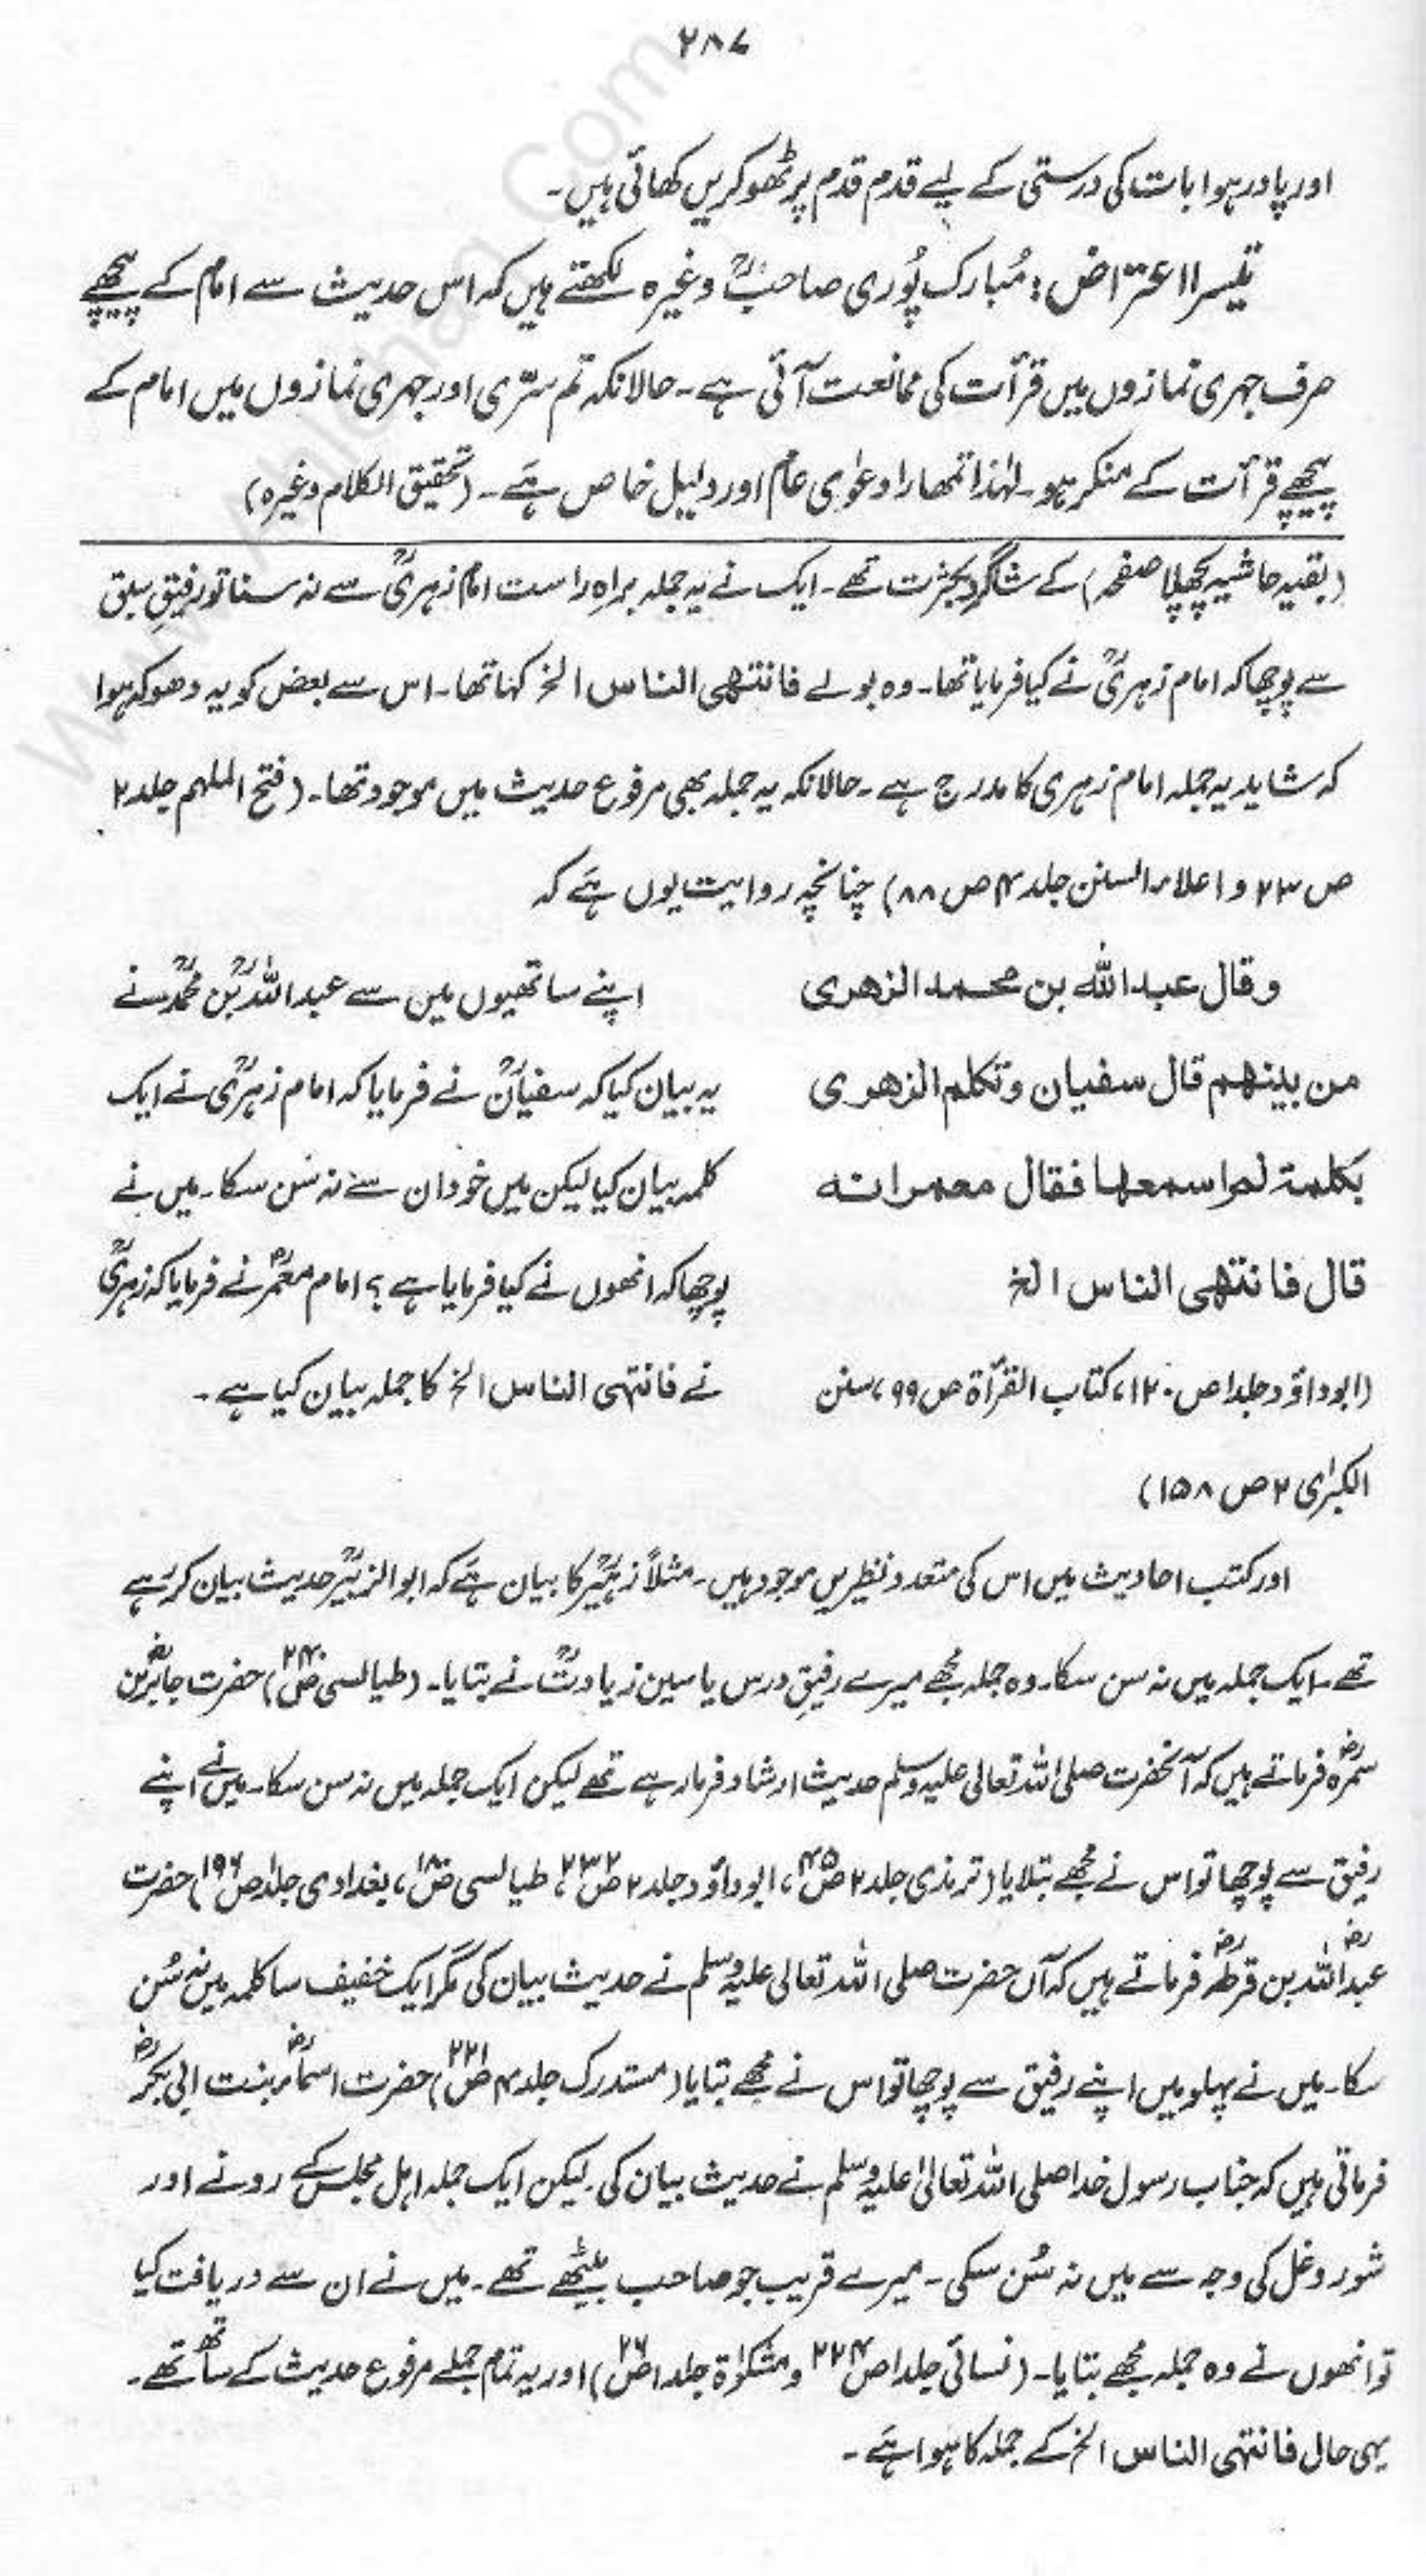 ۲۸۷
اور پا در ہوا بات کی درستی کے لیے قدم قدم پر ٹھوکریں کھائی ہیں۔
تیسرا اعتراض: مُبارک پُوری صاحبؒ وغیرہ لکھتے ہیں کہ اس حدیث سے امام کے پیچھے
صرف جہری نمازوں میں قرأت کی ممانعت آئی ہے۔ حالانکہ تم سرّی اور جہری نمازوں میں امام کے
پیچھے قرأت کے منکر ہو۔ لہٰذا تمھارا دعوٰی عام اور دلیل خاص ہے۔ (تحقیق الکلام وغیرہ)
(بقیہ حاشیہ پچھلا صفحہ) کے شاگرد بکثرت تھے۔ ایک نے یہ جملہ براہ راست امام زہریؒ سے نہ سنا تو رفیقِ سبق
سے پوچھا کہ امام زہریؒ نے کیا فرمایا تھا۔ وہ بولے فانتھی الناس الخ کہا تھا۔ اس سے بعض کو یہ دھوکہ ہوا
کہ شاید یہ جملہ امام زہری کا مدرج ہے۔ حالانکہ یہ جملہ بھی مرفوع حدیث میں موجود تھا۔ (فتح الملہم جلد ۲
ص ۲۳ و اعلاء السنن جلد ۴ ص ۸۸) چنانچہ روایت یوں ہے کہ
وقال عبد اللہ بن محمد الزھری
من بینھم قال سفیان وتکلم الزھری
بکلمة لم اسمعھا فقال معمر انه
قال فانتھی الناس الخ
(ابوداؤد جلد۱ ص ۱۲۰، کتاب القرأة ص ۹۹، سنن
الکبرٰی ۲ ص ۱۵۸)
اپنے ساتھیوں میں سے عبد اللہؒ بن محمدؒ نے
یہ بیان کیا کہ سفیانؒ نے فرمایا کہ امام زہریؒ نے ایک
کلمہ بیان کیا لیکن میں خود ان سے نہ سُن سکا۔ میں نے
پوچھا کہ انھوں نے کیا فرمایا ہے؟ امام معمرؒ نے فرمایا کہ زہریؒ
نے فانتہی الناس الخ کا جملہ بیان کیا ہے۔
اور کتب احادیث میں اس کی متعدد نظیریں موجود ہیں۔ مثلاً زہیرؒ کا بیان ہے کہ ابوالزبیرؒ حدیث بیان کر رہے
تھے۔ ایک جملہ میں نہ سن سکا۔ وہ جملہ مجھے میرے رفیقِ درس یاسین زیاتؒ نے بتایا۔ (طیالسی ص ۲۴۰) حضرت جابرؓ بن
سمرہؓ فرماتے ہیں کہ آنحضرت صلی اللہ تعالیٰ علیہ وسلم حدیث ارشاد فرما رہے تھے لیکن ایک جملہ میں نہ سن سکا۔ میں نے اپنے
رفیق سے پوچھا تو اس نے مجھے بتلایا (ترمذی جلد ۲ ص ۴۵، ابوداؤد جلد ۲ ص ۲۳۲، طیالسی ص ۱۸۰، بغدادی جلد۱ ص ۱۹۶) حضرت
عبد اللہؓ بن قرطؓ فرماتے ہیں کہ آں حضرت صلی اللہ تعالیٰ علیہ وسلم نے حدیث بیان کی مگر ایک خفیف سا کلمہ میں نہ سُن
سکا۔ میں نے پہلو میں اپنے رفیق سے پوچھا تو اس نے مجھے بتایا (مستدرک جلد ۴ ص ۲۲۱) حضرت اسماءؓ بنت ابی بکرؓ
فرماتی ہیں کہ جناب رسول خدا صلی اللہ تعالیٰ علیہ وسلم نے حدیث بیان کی۔ لیکن ایک جملہ اہل مجلس کے رونے اور
شور و غل کی وجہ سے میں نہ سُن سکی۔ میرے قریب جو صاحب بیٹھے تھے۔ میں نے ان سے دریافت کیا
تو انھوں نے وہ جملہ مجھے بتایا۔ (نسائی جلد۱ ص ۲۲۴ و مشکوٰة جلد۱ ص ۲۶) اور یہ تمام جملے مرفوع حدیث کے ساتھ تھے۔
یہی حال فانتہی الناس الخ کے جملہ کا ہوا ہے۔